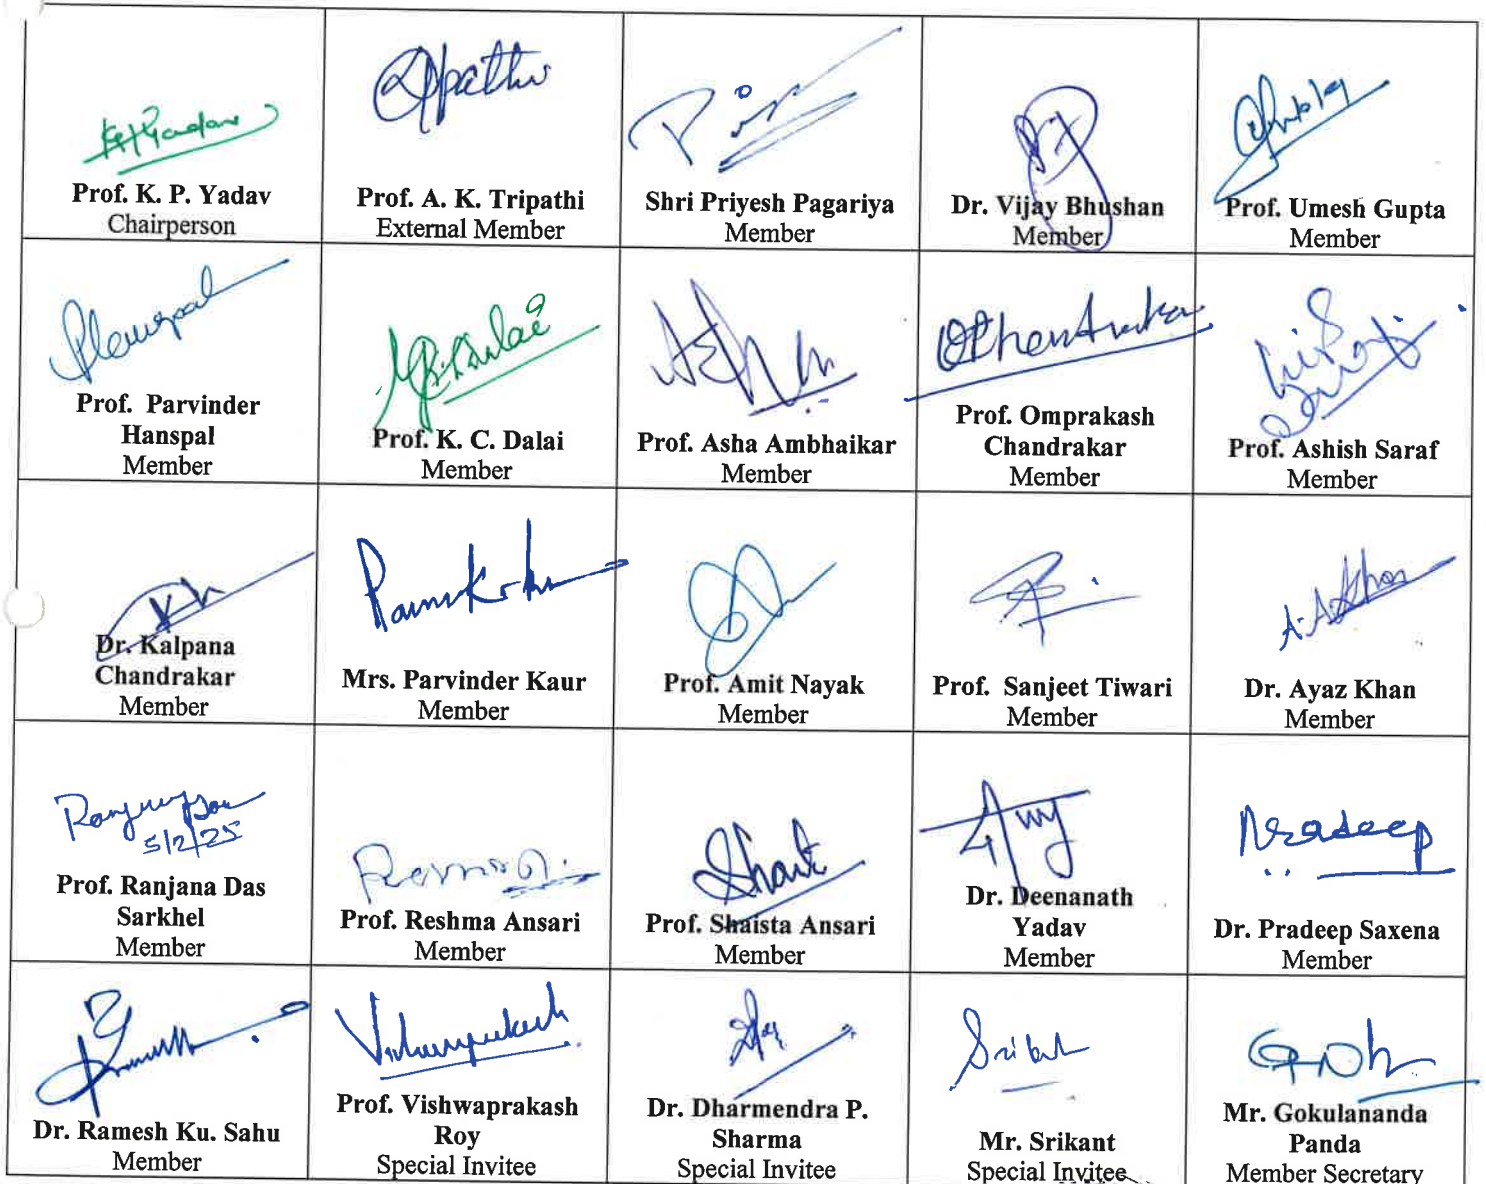 Prof. K. P. Yadav
Chairperson
Prof. A. K. Tripathi
External Member
Shri Priyesh Pagariya
Member
Dr. Vijay Bhushan
Member
Prof. Umesh Gupta
Member
Prof. Parvinder
Hanspal
Member
Prof. K. C. Dalai
Member
Prof. Asha Ambhaikar
Member
Prof. Omprakash
Chandrakar
Member
Prof. Ashish Saraf
Member
Dr. Kalpana
Chandrakar
Member
Mrs. Parvinder Kaur
Member
Prof. Amit Nayak
Member
Prof. Sanjeet Tiwari
Member
A.A.Khan
Dr. Ayaz Khan
Member
5/2/25
Prof. Ranjana Das
Sarkhel
Member
Prof. Reshma Ansari
Member
Prof. Shaista Ansari
Member
Dr. Deenanath
Yadav
Member
Pradeep
Dr. Pradeep Saxena
Member
Dr. Ramesh Ku. Sahu
Member
Prof. Vishwaprakash
Roy
Special Invitee
Dr. Dharmendra P.
Sharma
Special Invitee
Mr. Srikant
Special Invitee
Mr. Gokulananda
Panda
Member Secretary